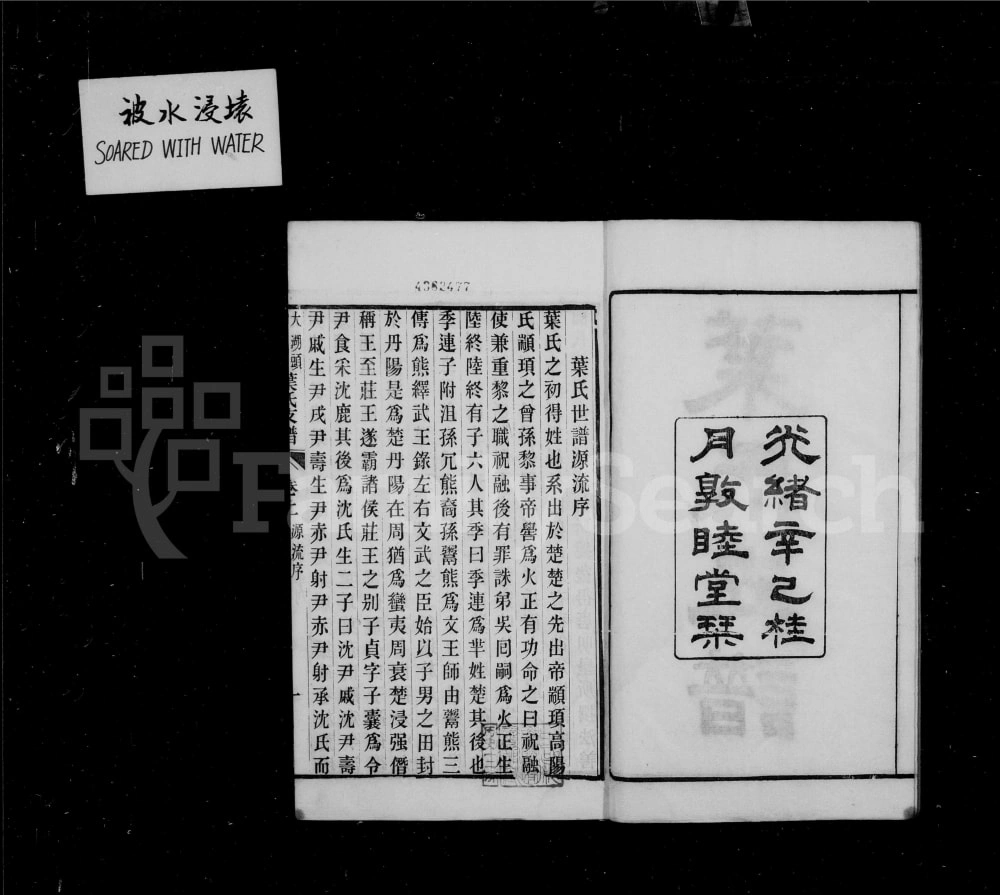 被水浸壊
SOARED WITH WATER
光緒辛巳桂
月敦睦堂栞
4382477
葉氏世譜源流序
葉氏之初得姓也系出於楚楚之先出帝顓頊高陽
氏顓頊之曾孫黎事帝嚳爲火正有功命之曰祝融
使兼重黎之職祝融後有罪誅弟吳囘嗣爲火正生
陸終陸終有子六人其季曰季連爲芈姓楚其後也
季連子附沮孫冗熊裔孫鬻熊爲文王師由鬻熊三
傳爲熊繹武王錄左右文武之臣始以子男之田封
於丹陽是爲楚丹陽在周猶爲蠻夷周衰楚浸强僭
稱王至莊王遂霸諸侯莊王之別子貞字子囊爲令
尹食采沈鹿其後爲沈氏生二子曰沈尹戚沈尹壽
尹戚生尹戌尹壽生尹赤尹射尹赤尹射承沈氏而
葉氏支譜 卷 源流序 一
FamilySearch